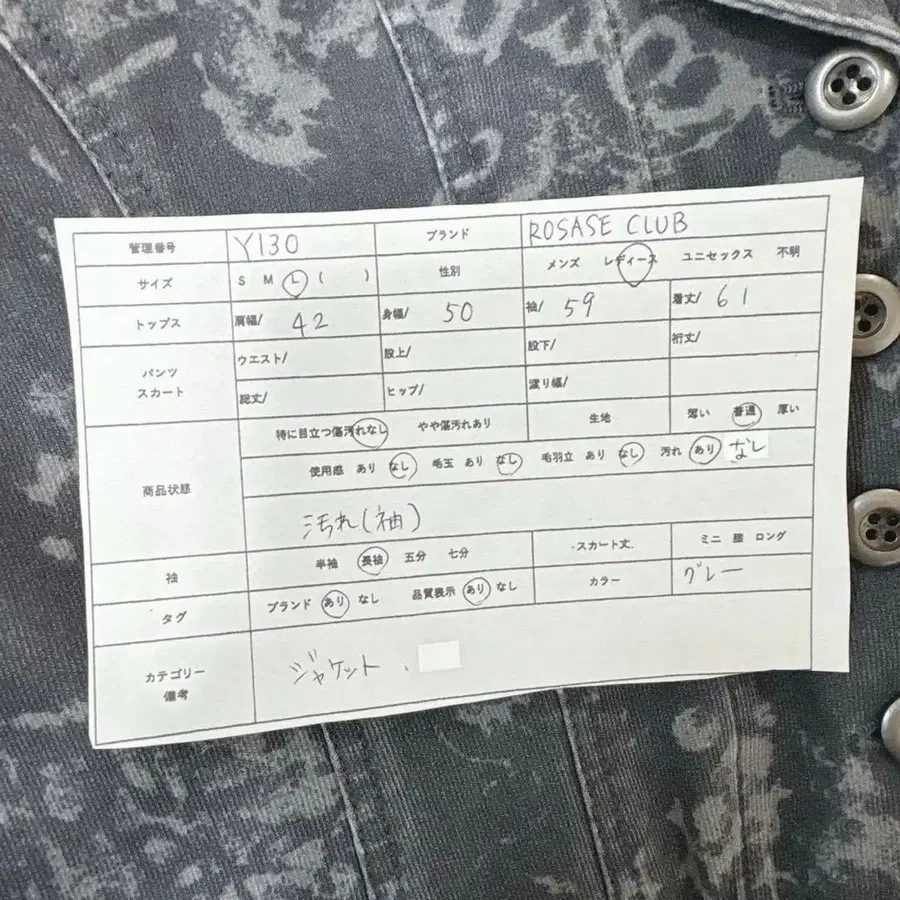 管理番号 Y130 ブランド ROSASE CLUB
サイズ S M L ( ) 性別 メンズ レディース ユニセックス 不明
トップス 肩幅/ 42 身幅/ 50 袖/ 59 着丈/ 61
パンツ スカート ウエスト/ 股上/ 股下/ 裄丈/
総丈/ ヒップ/ 渡り幅/
商品状態 特に目立つ傷汚れなし やや傷汚れあり 生地 薄い 普通 厚い
使用感 あり なし 毛玉 あり なし 毛羽立 あり なし 汚れ あり なし
汚れ(袖)
袖 半袖 長袖 五分 七分 スカート丈 ミニ 膝 ロング
タグ ブランド あり なし 品質表示 あり なし カラー グレー
カテゴリー 備考 ジャケット.